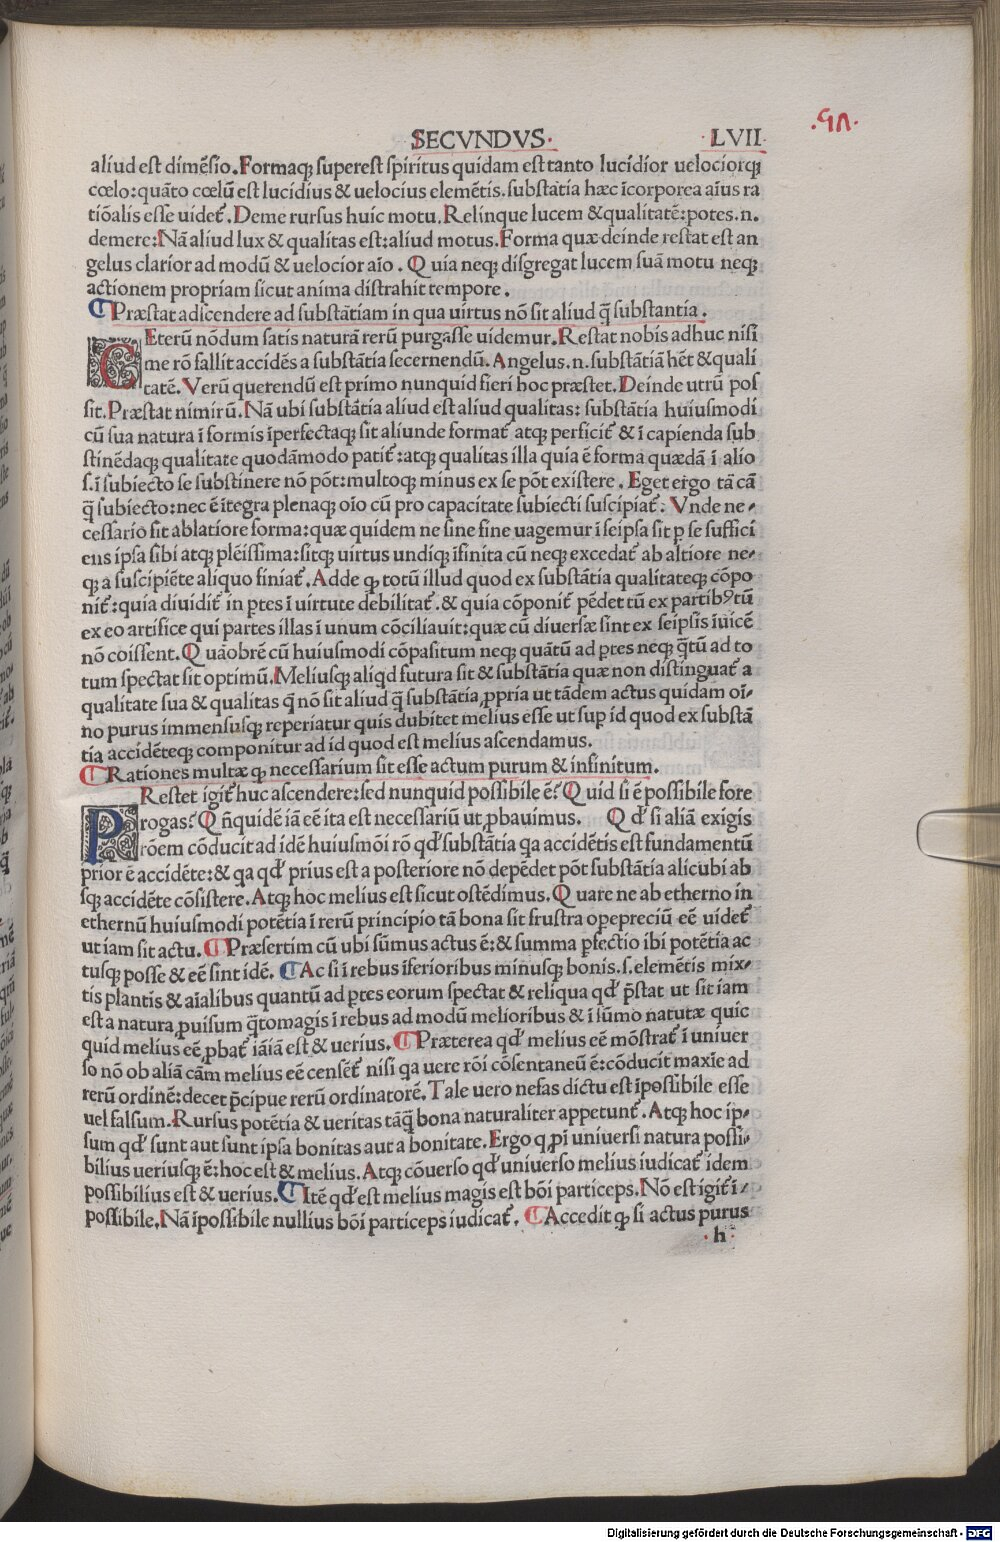 SECVNDVS. .LVII.
aliud est dimēsio. Formaqꝫ superest spiritus quidam est tanto lucidior uelociorqꝫ
cœlo: quāto cœlū est lucidius & uelocius elemētis. substātia hæc īcorporea aīus ra
tiōalis esse uidet᷑. Deme rursus huic motu. Relinque lucem & qualitatē: potes .n.
demere: Nā aliud lux & qualitas est: aliud motus. Forma quæ deinde restat est an
gelus clarior ad modū & uelocior aīo. Quia neqꝫ disgregat lucem suā motu neqꝫ
actionem propriam sicut anima distrahit tempore.
Præstat adscendere ad substātiam in qua uirtus nō sit aliud q̄ substantia.
CEterū nōdum satis naturā rerū purgasse uidemur. Restat nobis adhuc nisi
me rō fallit accidēs a substātia secernendū. Angelus .n. substātiā hēt & quali
tatē. Verū querendū est primo nunquid fieri hoc præstet. Deinde utrū pos
sit. Præstat nimirū. Nā ubi substātia aliud est aliud qualitas: substātia huiusmodi
cū sua natura ī formis īperfectaqꝫ sit aliunde format᷑ atqꝫ perficit᷑ & ī capienda sub
stinēdaqꝫ qualitate quodāmodo patit᷑: atqꝫ qualitas illa quia ē forma quædā ī alio
s. ī subiecto se substinere nō pōt: multoqꝫ minus ex se pōt existere. Eget ergo tā cā
q̄ subiecto: nec ē ītegra plenaqꝫ oīo cū pro capacitate subiecti suscipiat᷑: Vnde ne-
cessario sit ablatiore forma: quæ quidem ne sine fine uagemur ī seipsa sit ꝑ se suffici
ens ipsa sibi atqꝫ plēissima: sitqꝫ uirtus undiqꝫ īfinita cū neqꝫ excedat᷑ ab altiore ne-
qꝫ a suscipiēte aliquo finiat᷑. Adde qꝫ totū illud quod ex substātia qualitateqꝫ cōpo
nit᷑: quia diuidit᷑ in ꝑtes ī uirtute debilitat᷑. & quia cōponit᷑ pēdet tū ex partibꝰ tū
ex eo artifice qui partes illas ī unum cōciliauit: quæ cū diuersæ sint ex seipsis īuicē
nō coissent. Quāobrē cū huiusmodi cōpasitum neqꝫ quātū ad ꝑtes neqꝫ q̄tū ad to
tum spectat sit optimū. Meliusqꝫ aliqd futura sit & substātia quæ non distinguat᷑ a
qualitate sua & qualitas q̄ nō sit aliud q̄ substātia, ꝓpria ut tādem actus quidam oī-
no purus immensusqꝫ reperiatur quis dubitet melius esse ut sup id quod ex substā
tia accidēteqꝫ componitur ad id quod est melius ascendamus.
Rationes multæ qꝫ necessarium sit esse actum purum & infinitum.
PRestet igit᷑ huc ascendere: sed nunquid possibile ē? Quid si ē possibile fore
rogas? Qn̄quidē iā eē ita est necessariū ut ꝓbauimus. Qd' si aliā exigis
rōem cōducit ad idē huiusmōi rō qd' substātia qa accidētis est fundamentū
prior ē accidēte: & qa qd' prius est a posteriore nō depēdet pōt substātia alicubi ab
sqꝫ accidēte cōsistere. Atqꝫ hoc melius est sicut ostēdimus. Quare ne ab etherno in
ethernū huiusmodi potētia ī rerū principio tā bona sit frustra opepreciū eē uidet᷑
ut iam sit actu. Præsertim cū ubi sūmus actus ē: & summa ꝑfectio ibi potētia ac
tusqꝫ posse & eē sint idē. Ac si ī rebus īferioribus minusqꝫ bonis .s. elemētis mix-
tis plantis & aīalibus quantū ad ꝑtes eorum spectat & reliqua qd' p̄stat ut sit iam
est a natura ꝓuisum q̄tomagis ī rebus ad modū melioribus & ī sūmo naturæ quic
quid melius eē ꝓbat᷑ iāiā est & uerius. Præterea qd' melius eē mōstrat᷑ ī uniuer
so nō ob aliā cām melius eē censēt᷑ nisi qa uere rōi cōsentaneū ē: cōducit maxīe ad
rerū ordinē: decet p̄cipue rerū ordinatorē. Tale uero nefas dictu est īpossibile esse
uel falsum. Rursus potētia & ueritas tāq̄ bona naturaliter appetunt᷑. Atqꝫ hoc ip-
sum qd' sunt aut sunt ipsa bonitas aut a bonitate. Ergo q ꝓpi uniuersi natura possi-
bilius ueriusqꝫ ē: hoc est & melius. Atqꝫ cōuerso qd' uniuerso melius iudicat᷑ idem
possibilius est & uerius. Itē qd' est melius magis est bōi particeps. Nō est igit᷑ ī-
possibile. Nā īpossibile nullius bōi particeps iudicat᷑. Accedit qꝫ si actus purus
.h.
Digitalisierung gefördert durch die Deutsche Forschungsgemeinschaft - DFG